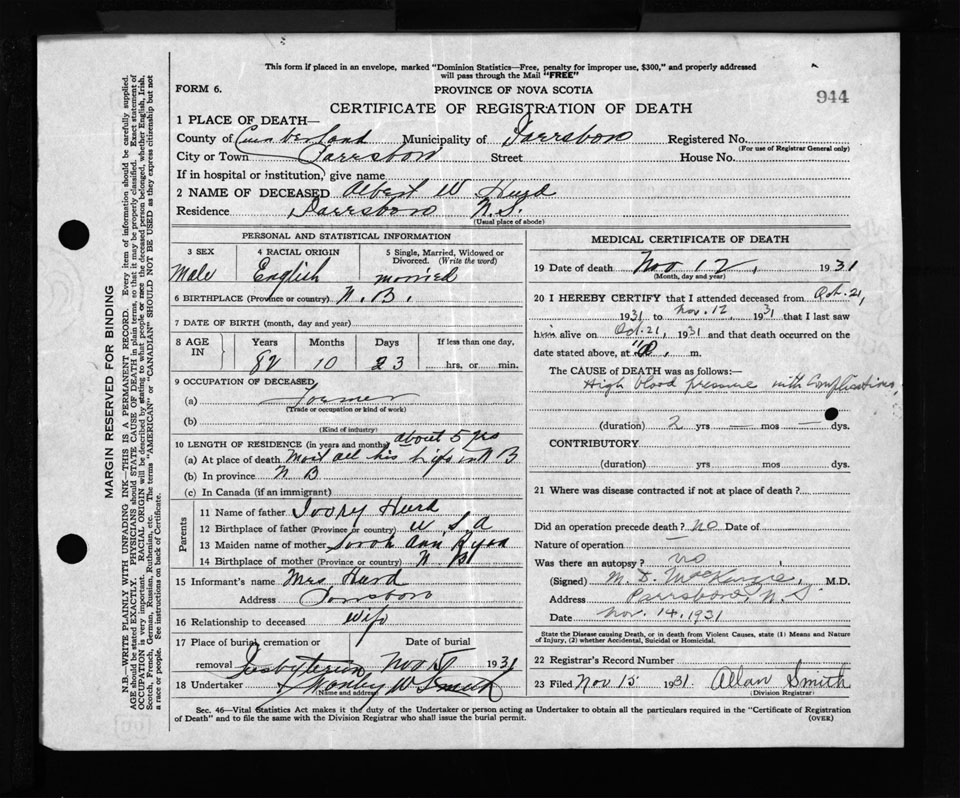 This form if placed in an envelope, marked "Dominion Statistics—Free, penalty for improper use, $300," and properly addressed
will pass through the Mail "FREE"
FORM 6.
PROVINCE OF NOVA SCOTIA
944
CERTIFICATE OF REGISTRATION OF DEATH
1 PLACE OF DEATH—
County of Cumberland Municipality of Parrsboro Registered No.
(For use of Registrar General only)
City or Town Parrsboro Street House No.
If in hospital or institution, give name
2 NAME OF DECEASED Albert W Hurd
Residence Parrsboro N.S.
(Usual place of abode)
PERSONAL AND STATISTICAL INFORMATION
3 SEX 4 RACIAL ORIGIN 5 Single, Married, Widowed or
Divorced. (Write the word)
Male English married
6 BIRTHPLACE (Province or country) N. B.
7 DATE OF BIRTH (month, day and year)
8 AGE IN Years Months Days If less than one day,
82 10 23 hrs, or min.
9 OCCUPATION OF DECEASED
(a) Farmer
(Trade or occupation or kind of work)
(b)
(Kind of industry)
10 LENGTH OF RESIDENCE (in years and months) about 5 yrs
(a) At place of death most all his life in N B
(b) In province N B
(c) In Canada (if an immigrant)
Parents
11 Name of father Ivory Hurd
12 Birthplace of father (Province or country) U S A
13 Maiden name of mother Sarah Ann Ryan
14 Birthplace of mother (Province or country) N. B
15 Informant's name Mrs Hurd
Address Parrsboro
16 Relationship to deceased wife
17 Place of burial, cremation or Date of burial
removal Nov 1931
18 Undertaker Stanley W Smith
(Name and address)
MEDICAL CERTIFICATE OF DEATH
19 Date of death Nov 12, 1931
(Month, day and year)
20 I HEREBY CERTIFY that I attended deceased from Oct. 21,
1931 to Nov. 12, 1931 that I last saw
him alive on Oct. 21, 1931 and that death occurred on the
date stated above, at m.
The CAUSE of DEATH was as follows:—
High blood pressure with Complications,
(duration) 2 yrs — mos — dys.
CONTRIBUTORY
(duration) yrs. mos. dys.
21 Where was disease contracted if not at place of death?
Did an operation precede death? no Date of
Nature of operation —
Was there an autopsy? no
(Signed) M. D. MacKenzie, M.D.
Address Parrsboro, N.S.
Date Nov. 14, 1931
State the Disease causing Death, or in death from Violent Causes, state (1) Means and Nature
of Injury, (2) whether Accidental, Suicidal or Homicidal.
22 Registrar's Record Number
23 Filed Nov 15 1931. Allan Smith
(Division Registrar)
Sec. 46—Vital Statistics Act makes it the duty of the Undertaker or person acting as Undertaker to obtain all the particulars required in the "Certificate of Registration
of Death" and to file the same with the Division Registrar who shall issue the burial permit. (OVER)
MARGIN RESERVED FOR BINDING
N.B.—WRITE PLAINLY WITH UNFADING INK—THIS IS A PERMANENT RECORD. Every item of information should be carefully supplied.
AGE should be stated EXACTLY. PHYSICIANS should STATE CAUSE OF DEATH in plain terms, so that it may be properly classified. Exact statement of
OCCUPATION is very important. RACIAL ORIGIN will be described by stating to what people or race the deceased person belonged, whether English, Irish,
Scotch, French, German, Russian, Ruthenian, etc. The terms "AMERICAN" or "CANADIAN" SHOULD NOT BE USED as they express citizenship but not
a race or people. See instructions on back of Certificate.